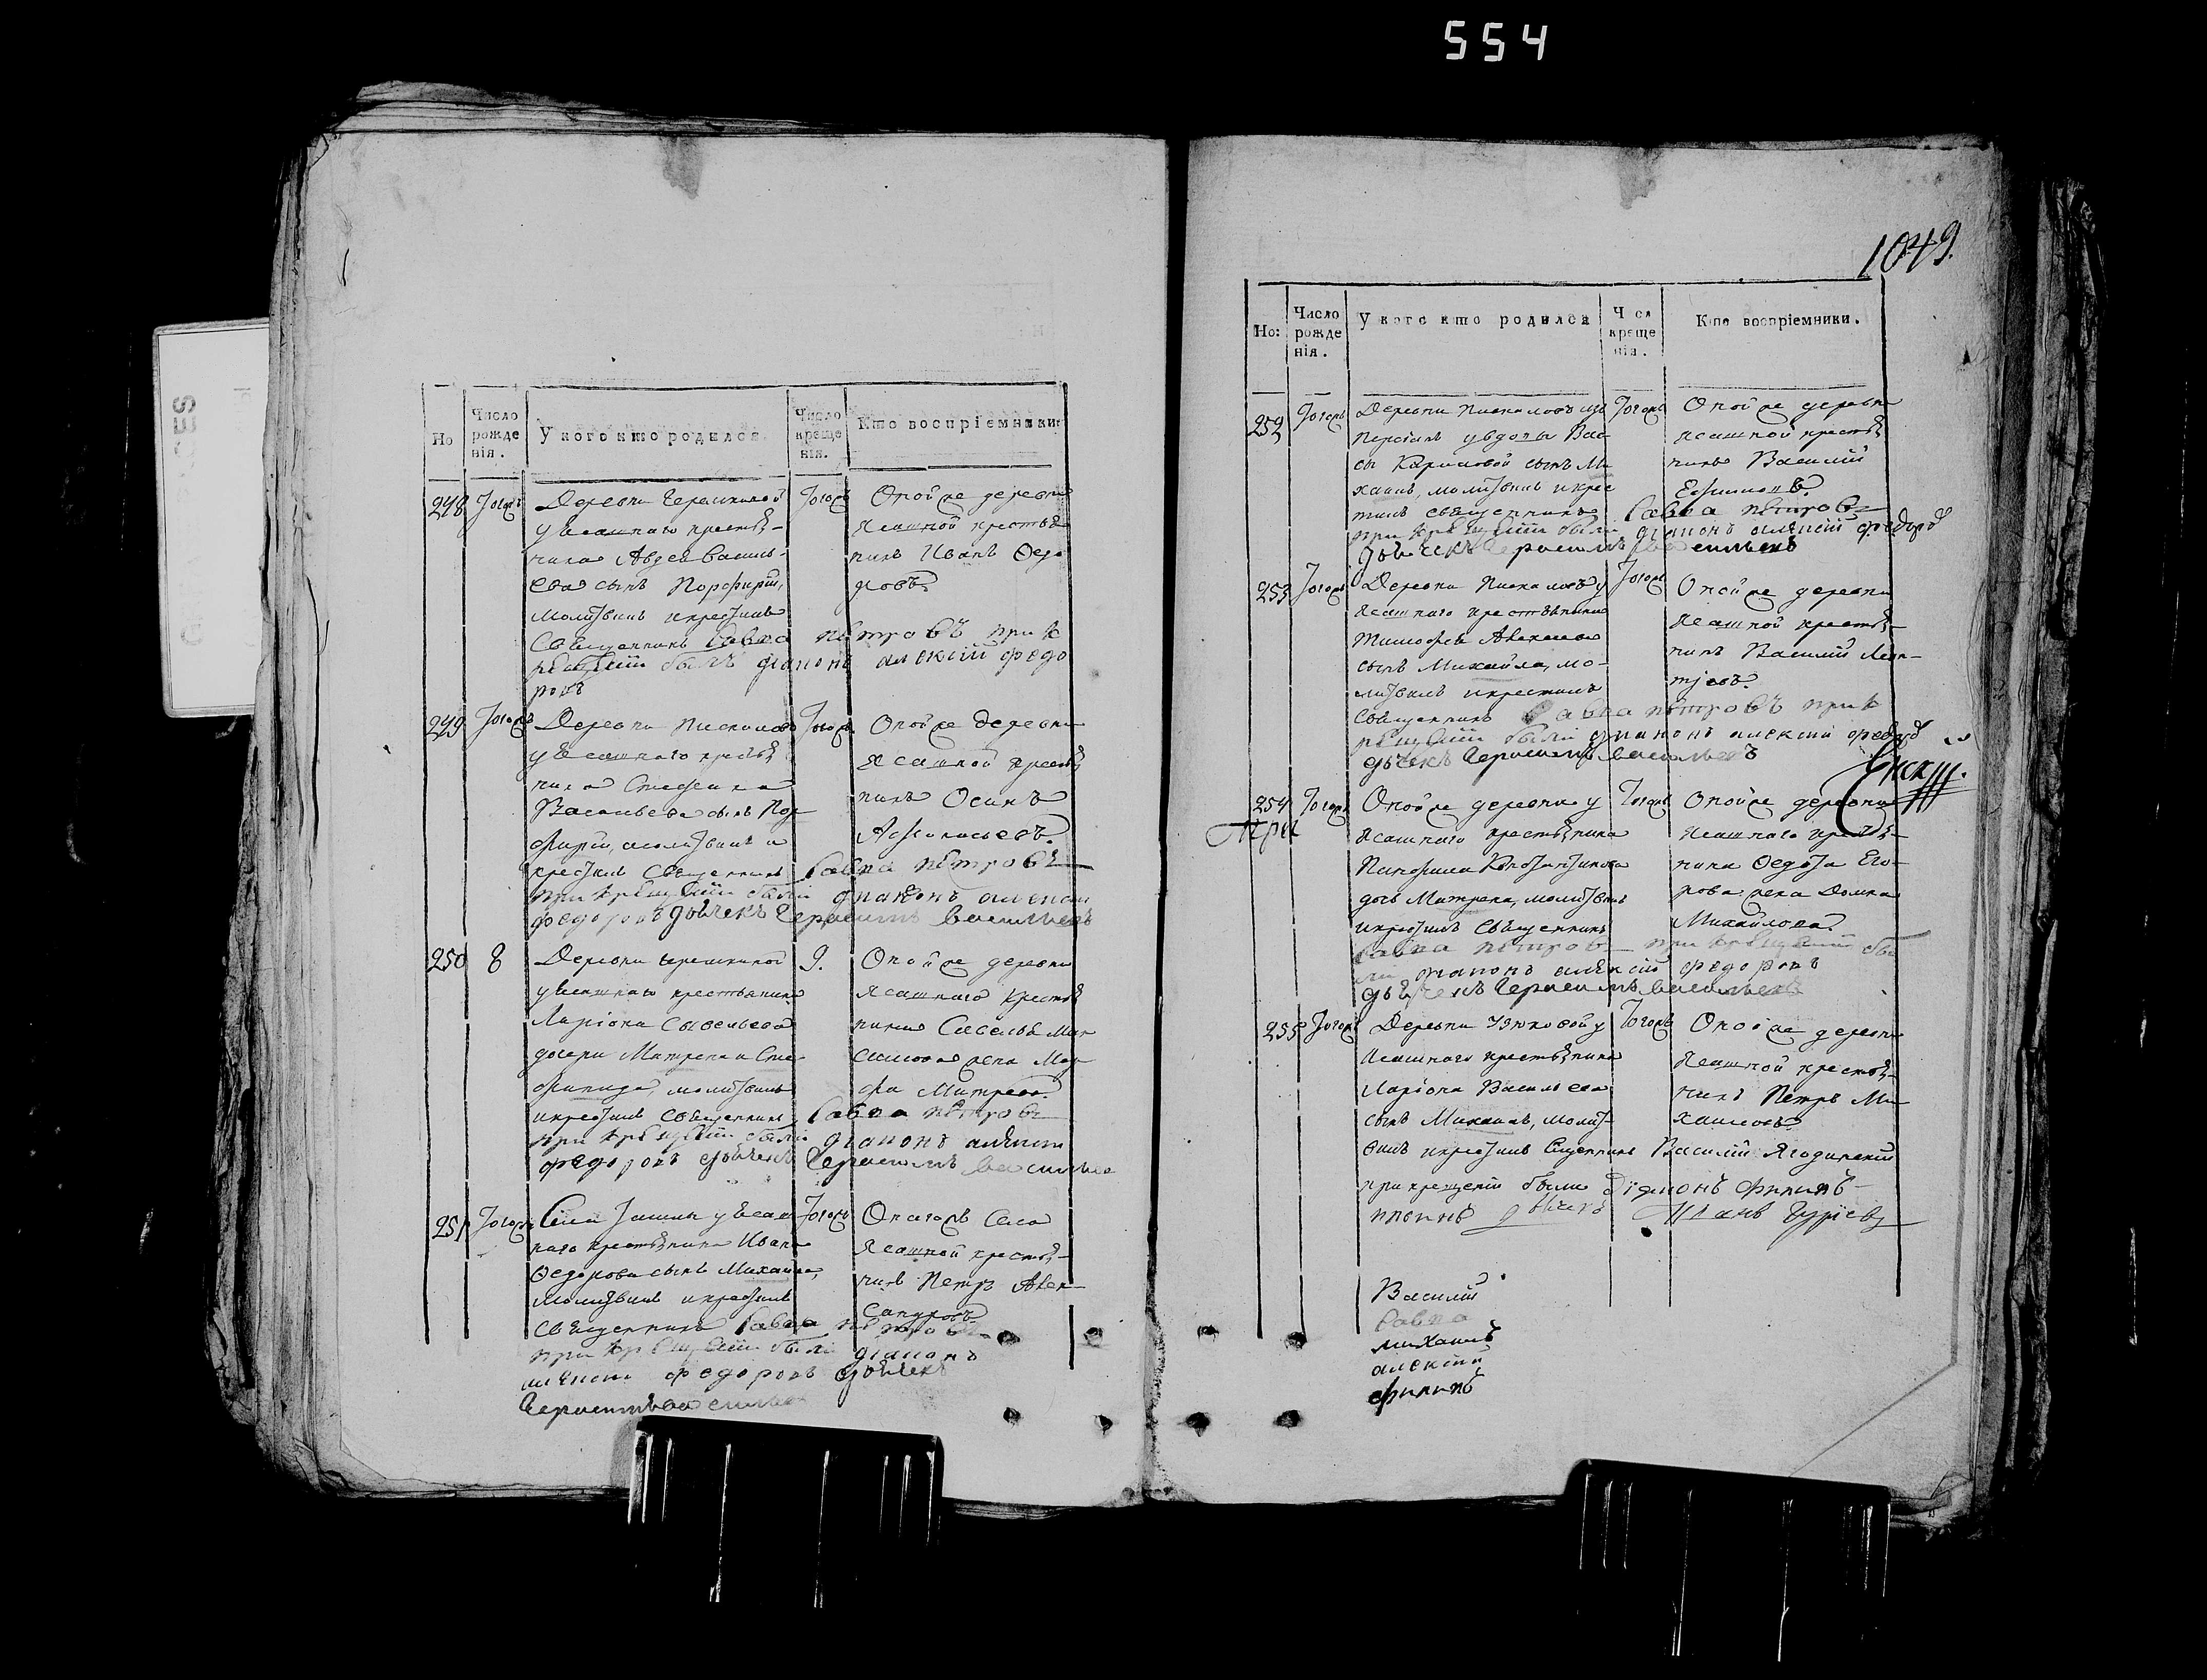 554
1049.
Но
Число рожденія.
У кого кто родился.
Число крещенія.
Кто воспріемники
248
Тогожъ
Деревни
у ясашнаго крестья-
нина Авдея Василь-
ева сынъ Порфирій,
молитвилъ и крестилъ
Священникъ Савва Петровъ при к
рещеніи былъ діаконъ алексій федо
ровъ
Тогожъ
Оной же деревни
Ясашной крестья
нинъ Иванъ Федо
ровъ.
249
Тогожъ
Деревни
у ясашнаго крестья
нина Степана
Васильева сынъ Пор
фирій, молитвилъ и
крестилъ Священникъ Савва Петровъ
при крещеніи были діаконъ алексій
федоровъ дьячекъ Герасимъ васильевъ
Тогожъ
Оной же деревни
Ясашной крестья
нинъ Осипъ
Афанасьевъ.
250
8
Деревни
у ясашнаго крестьянина
Ларіона Савельева
дочери Матрена и Сте
фанида, молитвилъ
и крестилъ Священникъ Савва Петровъ
при крещеніи были діаконъ алексій
федоровъ дьячекъ Герасимъ василье
9.
Оной же деревни
Ясашнаго крестья
нина Савелья Мак
симова жена Мар
фа
251
Тогожъ
Села у ясаш
наго крестьянина Ивана
Федорова сынъ Михаила,
молитвилъ и крестилъ
Священникъ Савва Петровъ
при крещеніи были діаконъ
алексій федоровъ дьячекъ
Герасимъ васильевъ
Тогожъ
Онагожъ Села
Ясашной крестья-
нинъ Петръ Алек-
сандровъ
Но:
Число рожденія.
У кого кто родился
Чсл крещенія.
Кто воспріемники.
252
Тогожъ
Деревни
у вдовы Вас
сы Карповой сынъ Ми
хаилъ, молитвилъ и крес
тилъ священникъ Савва Петровъ
при крещеніи были діаконъ алексій федоровъ
дьячекъ Герасимъ васильевъ
Тогожъ
Оной же деревни
Ясашной крестья
нинъ Василій
253
Тогожъ
Деревни у
Ясашнаго крестьянина
Тимофея Алексеева
сынъ Михайла, мо-
литвилъ и крестилъ
Священникъ Савва Петровъ при к
рещеніи были діаконъ алексій федоровъ
дьячекъ Герасимъ васильевъ
Тогожъ
Оной же деревни
Ясашной крестья-
нинъ Василій Леон-
тьевъ.
254
Тогожъ
Оной же деревни у
Ясашнаго крестьянина
Памфила Константинова
дочь Матрена, молитвилъ
и крестилъ Священникъ
Савва Петровъ при крещеніи бы
ли діаконъ алексій федоровъ
дьячекъ Герасимъ васильевъ
Тогожъ
Оной же деревни
Ясашнаго крестья-
нина Федота Его-
рова жена Домна
Михайлова.
255
Тогожъ
Деревни у
Ясашнаго крестьянина
Ларіона Васильева
сынъ Михаилъ, молит-
вилъ и крестилъ Сщенникъ Василій Ягодинскій
при крещеніи были Діаконъ Филипъ
дьячекъ Иванъ Гурьевъ
Тогожъ
Оной же деревни
Ясашной крестья-
нинъ Петръ Ми
хайловъ.
Василій
Савва
михаилъ
алексій
филипъ